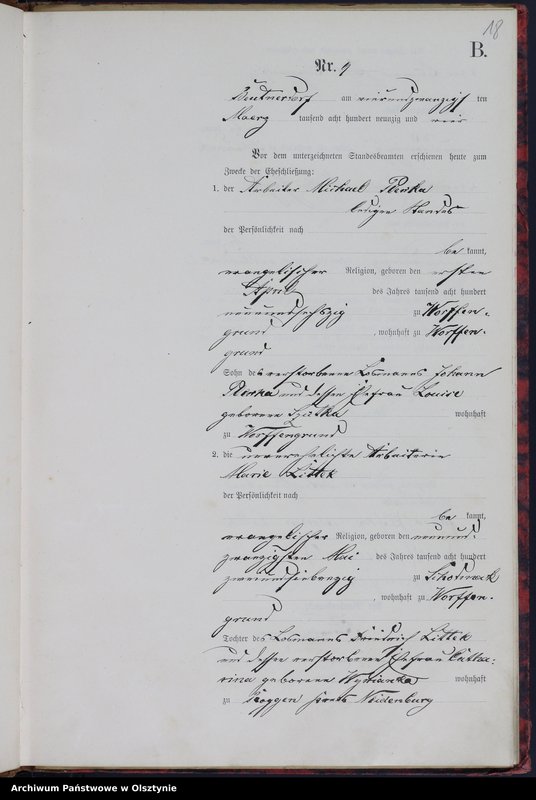 18
B.
Nr. 9
Beutnerdorf am vierundzwanzigsten
Maerz tausend acht hundert neunzig und vier
Vor dem unterzeichneten Standesbeamten erschienen heute zum
Zwecke der Eheschließung:
1. der Arbeiter Michael
ledigen Standes
der Persönlichkeit nach
be kannt,
evangelischer Religion, geboren den ersten
April des Jahres tausend acht hundert
neunundsechszig zu Worffen-
grund, wohnhaft zu Worffen-
grund
Sohn des verstorbenen Losmanns Johann
und dessen Ehefrau Louise
geborene wohnhaft
zu Worffengrund
2. die unverehelichte Arbeiterin
Marie Littek
der Persönlichkeit nach
be kannt,
evangelischer Religion, geboren den neunund-
zwanzigsten Mai des Jahres tausend acht hundert
zweiundsiebenzig zu
, wohnhaft zu Worffen-
grund
Tochter des Losmanns Friedrich Littek
und dessen verstorbener Ehefrau Catha-
rina geborene wohnhaft
zu Roggen Kreis Neidenburg
Archiwum Państwowe w Olsztynie